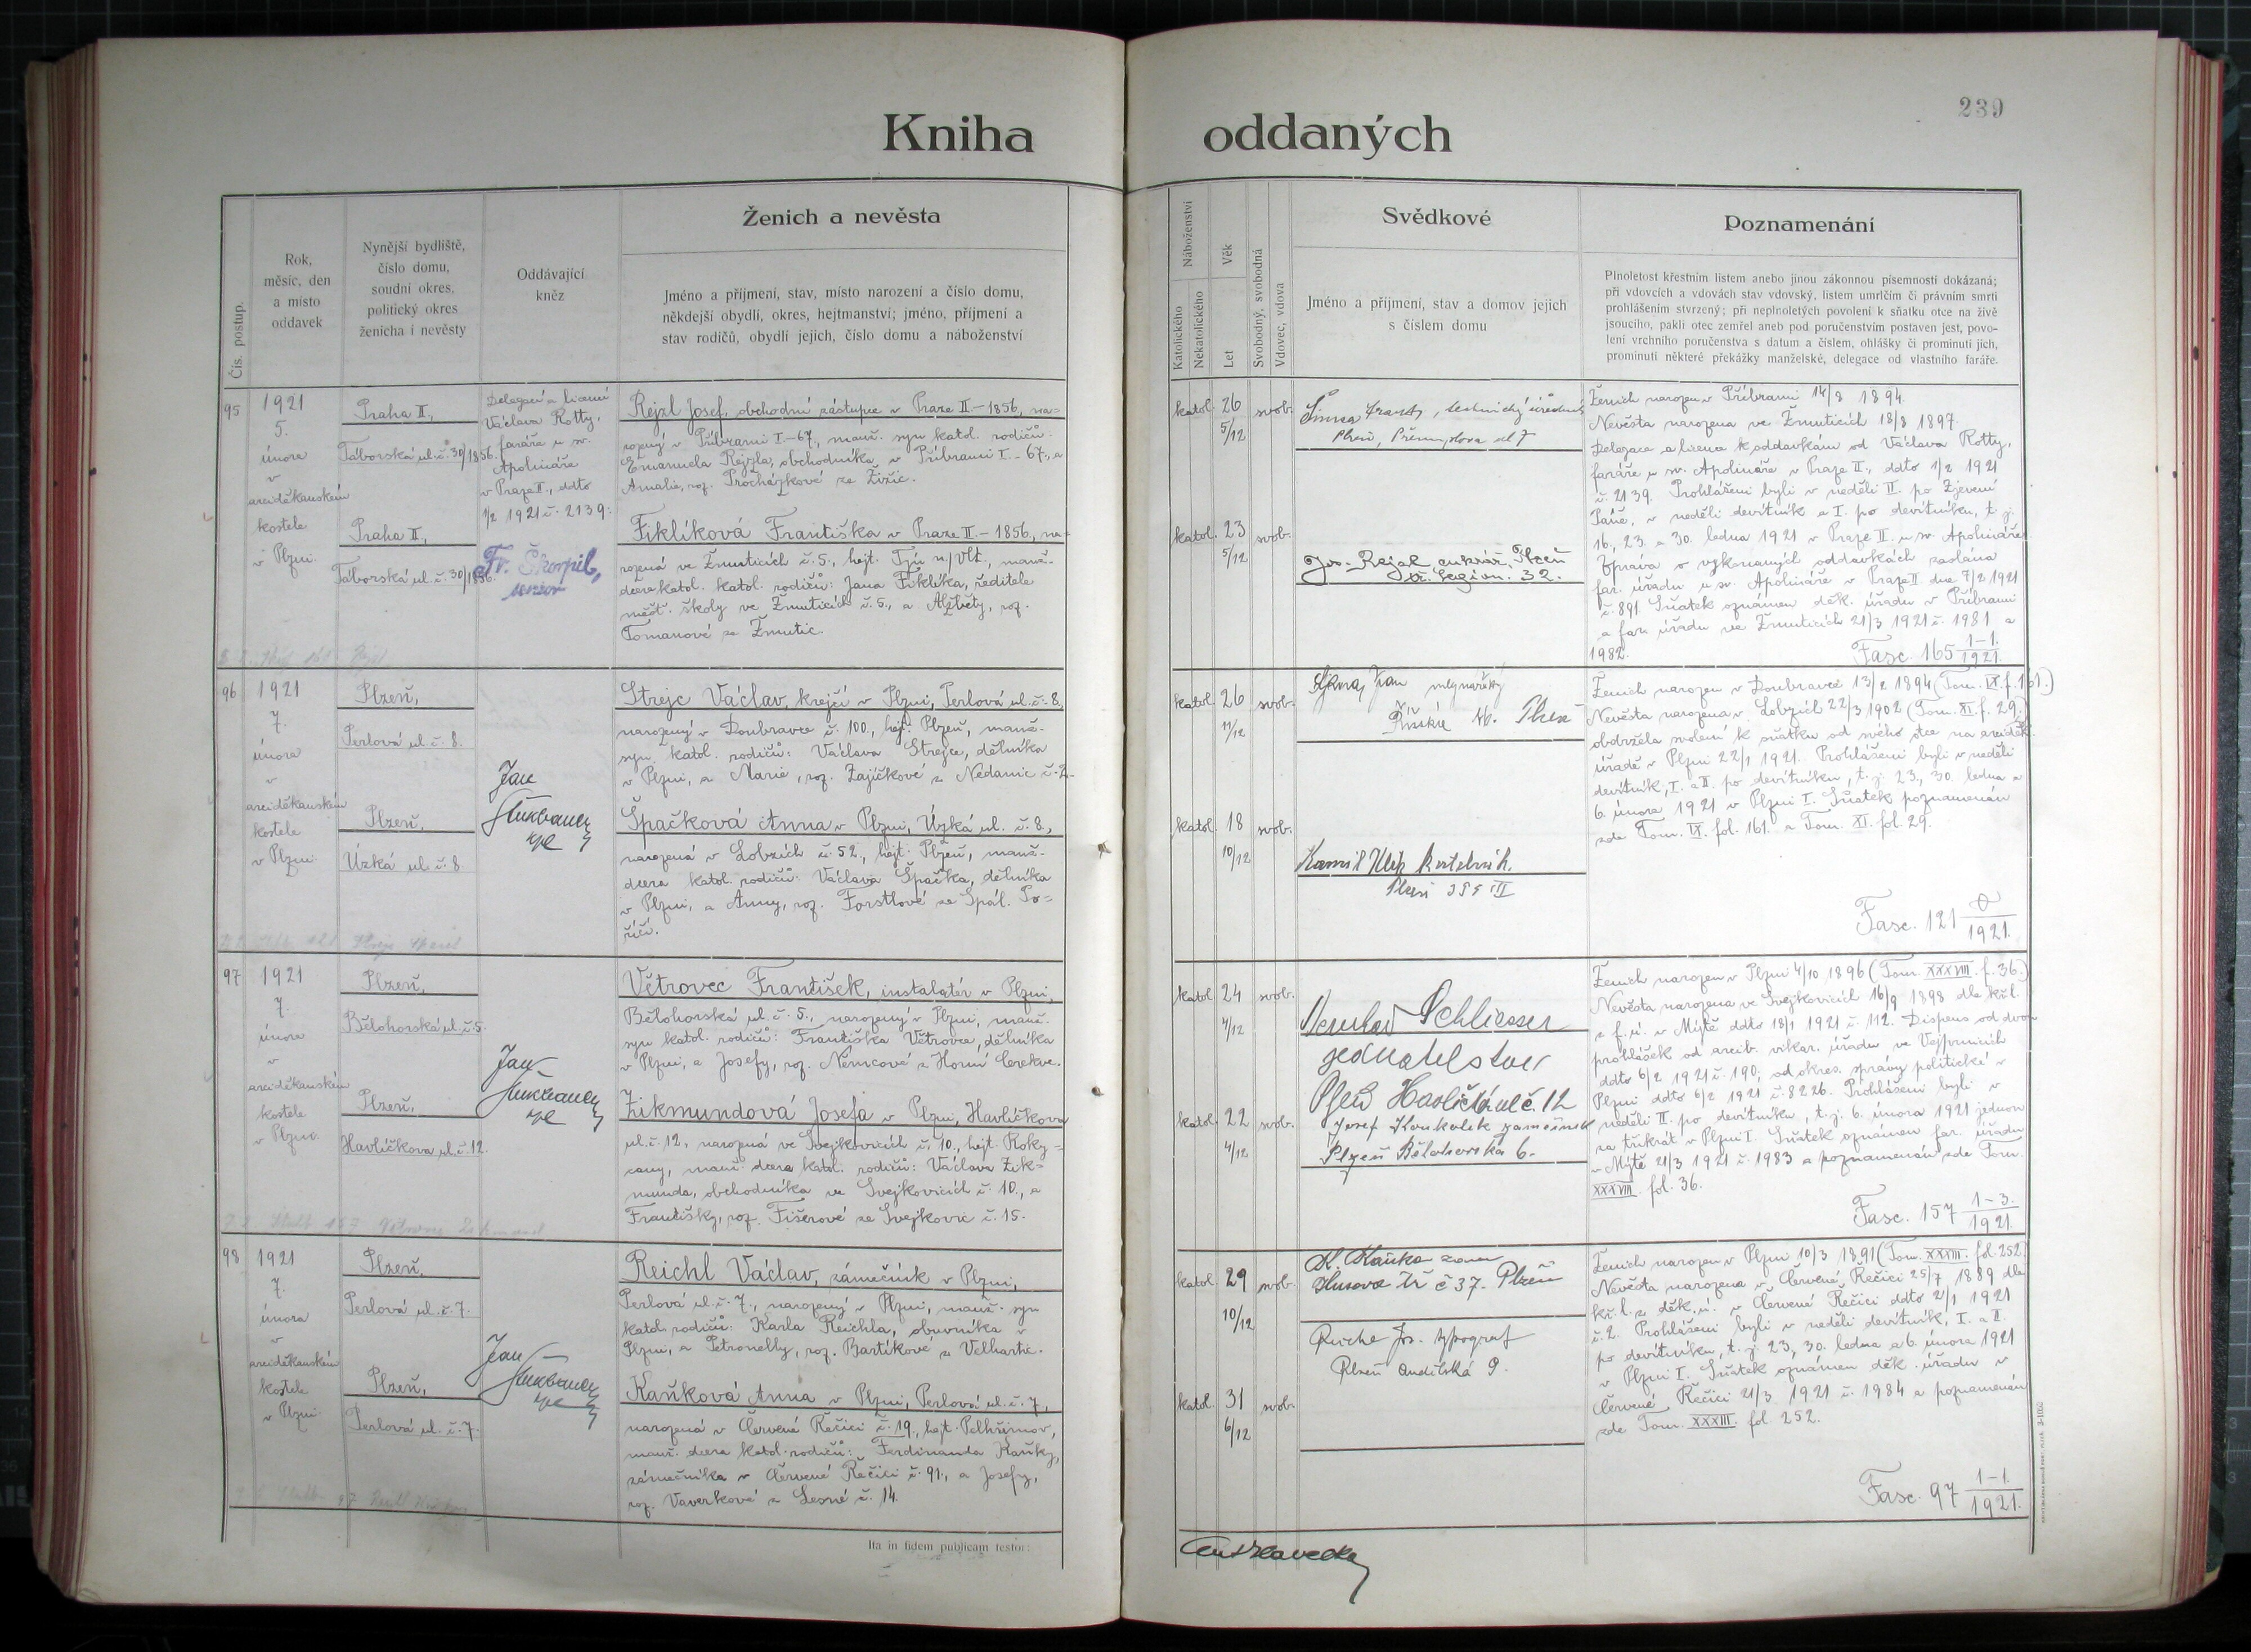 239
Kniha oddaných
Čís. postup.
Rok,
měsíc, den
a místo
oddavek
Nynější bydliště,
číslo domu,
soudní okres,
politický okres
ženicha i nevěsty
Oddávající
kněz
Ženich a nevěsta
Jméno a příjmení, stav, místo narození a číslo domu,
někdejší obydlí, okres, hejtmanství; jméno, příjmení a
stav rodičů, obydlí jejich, číslo domu a náboženství
Náboženství
Katolického
Nekatolického
Věk
Let
Svobodný, svobodná
Vdovec, vdova
Svědkové
Jméno a příjmení, stav a domov jejich
s číslem domu
Poznamenání
Plnoletost křestním listem anebo jinou zákonnou písemností dokázaná;
při vdovcích a vdovách stav vdovský, listem umrlčím či právním smrti
prohlášením stvrzený; při neplnoletých povolení k sňatku otce na živě
jsoucího, pakli otec zemřel aneb pod poručenstvím postaven jest, povo-
lení vrchního poručenstva s datum a číslem, ohlášky či prominutí jich,
prominutí některé překážky manželské, delegace od vlastního faráře.
95
1921
5.
února
v
arciděkanském
kostele
v Plzni.
Praha II.,
Táborská ul. č. 30/1856.
Praha II.,
Táborská ul. č. 30/1856.
Delegací a licencí
Václava Rotty,
faráře u sv.
Apolináře
v Praze II., ddto
1/2 1921 č. 2139:
Fr. Škorpil,
Rejzl Josef, obchodní zástupce v Praze II – 1856, na=
rozený v Příbrami I. – 67., manž. syn katol. rodičů:
Emanuela Rejzla, obchodníka v Příbrami I. – 67., a
Amalie, roz. Procházkové ze Žižic.
Fiklíková Františka v Praze II – 1856., na=
rozená ve Žimuticích č. 5., hejt. Týn n/Vlt., manž.
dcera katol. katol. rodičů: Jana Fiklíka, ředitele
měšť. školy ve Žimuticích č. 5., a Alžběty, roz.
Tomanové ze Žimutic.
katol. 26 5/12 svob.
katol. 23 5/12 svob.
Šimsa Frant., technický úředník
Plzeň, Přemyslova ul 7
Jos. Rejzl cukrář, Plzeň
tř. Legion. 32.
Ženich narozen v Příbrami 14/8 1894.
Nevěsta narozena ve Žimuticích 18/8 1897.
Delegace a licence k oddavkám od Václava Rotty,
faráře u sv. Apolináře v Praze II., ddto 1/2 1921
č. 2139. Prohlášeni byli v neděli II. po Zjevení
Páně, v neděli devítník a I. po devítníku, t. j.
16., 23. a 30. ledna 1921 v Praze II. u sv. Apolináře.
Zpráva o vykonaných oddavkách zaslána
far. úřadu u sv. Apolináře v Praze II dne 7/2 1921
č. 891. Sňatek oznámen děk. úřadu v Příbrami
a far. úřadu ve Žimuticích 21/3 1921 č. 1981 a
1982.
Fasc. 165 1–1./1921.
96
1921
7.
února
v
arciděkanském
kostele
v Plzni.
Plzeň,
Perlová ul. č. 8.
Plzeň,
Úzká ul. č. 8.
Jan
Strejc Václav, krejčí v Plzni, Perlová ul. č. 8.,
narozený v Doubravce č. 100., hejt. Plzeň, manž.
syn katol. rodičů: Václava Strejce, dělníka
v Plzni, a Marie, roz. Zajíčkové z Nedanic č. 2.
Špačková Anna v Plzni, Úzká ul. č. 8.,
narozená v Lobzích č. 52., hejt. Plzeň, manž.
dcera katol. rodičů: Václava Špačka, dělníka
v Plzni, a Anny, roz. Forstlové ze Spál. Po=
říčí.
katol. 26 11/12 svob.
katol. 18 10/12 svob.
Jan mlynářský
Říšská 46. Plzeň
Kamil
Plzeň
Ženich narozen v Doubravce 13/2 1894 (Tom. IX. f. 161.)
Nevěsta narozena v Lobzích 22/3 1902 (Tom. XI. f. 29.)
obdržela svolení k sňatku od svého otce na arciděk.
úřadě v Plzni 22/1 1921. Prohlášeni byli v neděli
devítník, I. a II. po devítníku, t. j. 23., 30. ledna a
6. února 1921 v Plzni I. Sňatek poznamenán
zde Tom. IX. fol. 161. a Tom. XI. fol. 29.
Fasc. 121 0/1921.
97
1921
7.
února
v
arciděkanském
kostele
v Plzni.
Plzeň,
Bělohorská ul. č. 5.
Plzeň,
Havlíčkova ul. č. 12.
Jan
Větrovec František, instalatér v Plzni,
Bělohorská ul. č. 5., narozený v Plzni, manž.
syn katol. rodičů: Františka Větrovce, dělníka
v Plzni, a Josefy, roz. Němcové z Horní Cerekve.
Zikmundová Josefa v Plzni, Havlíčkova
ul. č. 12., narozená ve Svejkovicích č. 10., hejt. Roky=
cany, manž. dcera katol. rodičů: Václava Zik=
munda, obchodníka ve Svejkovicích č. 10., a
Františky, roz. Fišerové ze Svejkovic č. 15.
katol. 24 4/12 svob.
katol. 22 4/12 svob.
Schliesser
Plzeň Havlíčk. ul č. 12
Josef Koukolík zámečník
Plzeň Bělohorská 6.
Ženich narozen v Plzni 4/10 1896 (Tom. XXXVIII. f. 36.)
Nevěsta narozena ve Svejkovicích 16/9 1898 dle kř. l.
z f. ú. v Mýtě ddto 18/1 1921 č. 112. Dispens od dvou
prohlášek od arcib. vikar. úřadu ve Vejprnicích
ddto 6/2 1921 č. 190, od okres. správy politické v
Plzni ddto 6/2 1921 č. 8226. Prohlášeni byli v
neděli II. po devítníku, t. j. 6. února 1921 jednou
za třikrát v Plzni I. Sňatek oznámen far. úřadu
v Mýtě 21/3 1921 č. 1983 a poznamenán zde Tom.
XXXVIII. fol. 36.
Fasc. 157 1–3./1921.
98
1921
7.
února
v
arciděkanském
kostele
v Plzni.
Plzeň,
Perlová ul. č. 7.
Plzeň,
Perlová ul. č. 7.
Jan
Reichl Václav, zámečník v Plzni,
Perlová ul. č. 7., narozený v Plzni, manž. syn
katol. rodičů: Karla Reichla, obuvníka v
Plzni, a Petronelly, roz. Bartíkové z Velhartic.
Kaňková Anna v Plzni, Perlová ul. č. 7.,
narozená v Červené Řečici č. 19., hejt. Pelhřimov,
manž. dcera katol. rodičů: Ferdinanda Kaňky,
zámečníka v Červené Řečici č. 91., a Josefy,
roz. Vaverkové z Lesné č. 14.
katol. 29 10/12 svob.
katol. 31 6/12 svob.
K. Kaňka
Husova tř č 37. Plzeň
Jos. typograf
Plzeň 9.
Ženich narozen v Plzni 10/3 1891 (Tom. XXXIII. fol. 252.)
Nevěsta narozena v Červené Řečici 25/7 1889 dle
kř. l. z děk. ú. v Červené Řečici ddto 2/1 1921
č. 2. Prohlášeni byli v neděli devítník, I. a II.
po devítníku, t. j. 23., 30. ledna a 6. února 1921
v Plzni I. Sňatek oznámen děk. úřadu v
Červené Řečici 21/3 1921 č. 1984 a poznamenán
zde Tom. XXXIII. fol. 252.
Fasc. 97 1–1./1921.
Ita in fidem publicam testor: